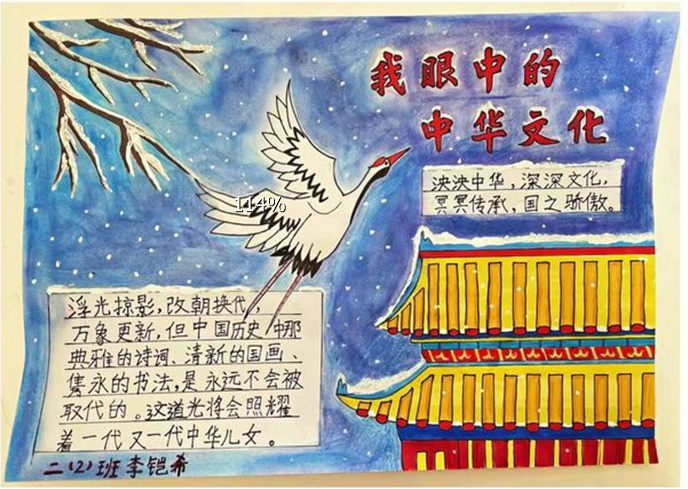 我眼中的
中华文化
泱泱中华，深深文化，
冥冥传承，国之骄傲。
114%
浮光掠影，改朝换代，
万象更新，但中国历史中那
典雅的诗词、清新的国画、
隽永的书法，是永远不会被
取代的。这道光将会照耀
着一代又一代中华儿女。
二（2）班 李铠希